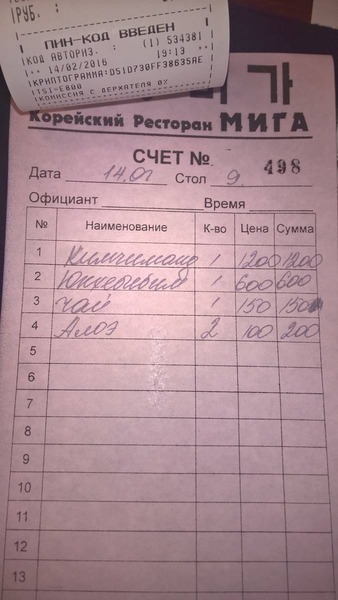 РУБ.
ПИН-КОД ВВЕДЕН
КОД АВТОРИЗ. : (1) 534381
** 14/02/2016 19:13 **
КРИПТОГРАММА:D51D730FF38635AE
TSI-E800
КОМИССИЯ С ДЕРЖАТЕЛЯ 0%
가
Корейский Ресторан МИГА
СЧЕТ № 498
Дата 14.02 Стол 9.
Официант Время
№ Наименование К-во Цена Сумма
1 1 1200 1200
2 1 600 600
3 Чай 1 150 150
4 Алоэ 2 100 200
5
6
7
8
9
10
11
12
13